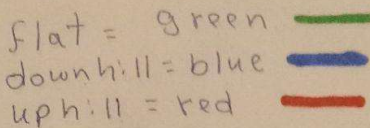 flat = green
downhill = blue
uphill = red